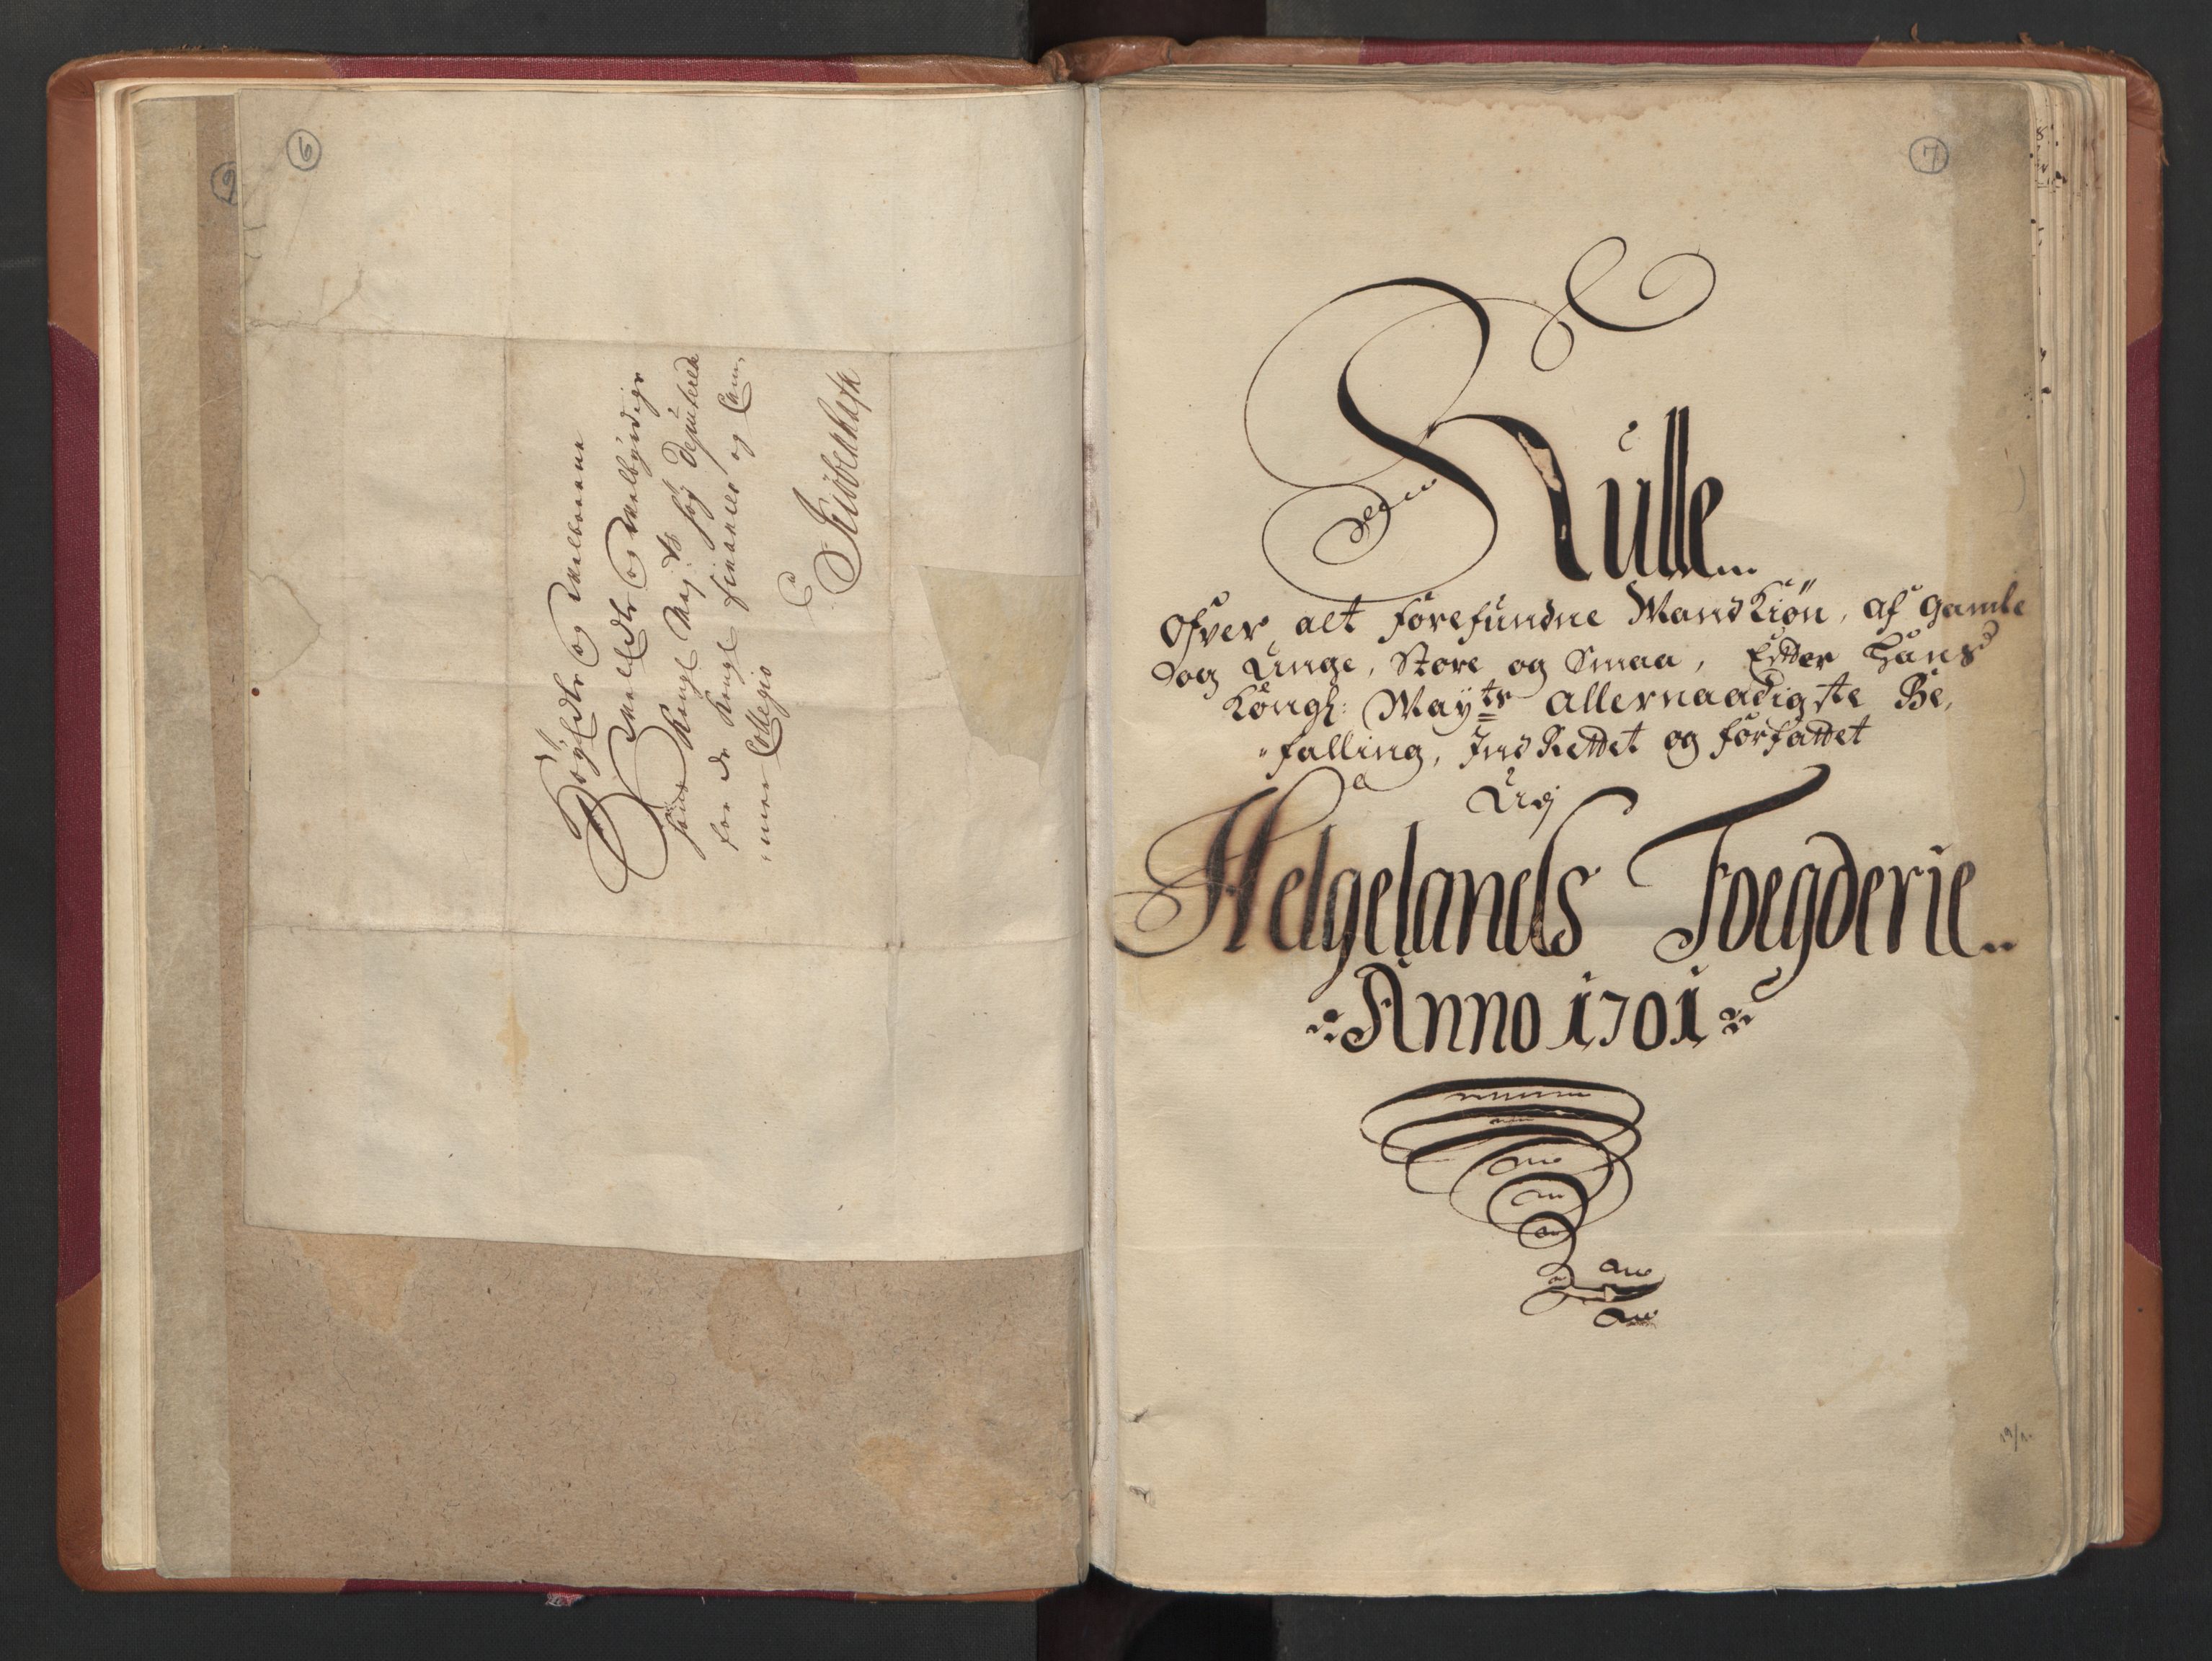 6
9
Höyædle og Velbaarne
Velædle og Velbyrdige
Hans Kongl Maj:ts høy Deputerede
for de Kongl finantzer og Cam,
,,mer Collegio
a
Kiöbenhafn
7
Rulle
Ofver alt forefundne MandKiön, af gamle
og Unge, Store og Smaa, Efter Hans
Kongl: Mayts allernaadigste Be,
"falling, IndRettet og forfattet
Udj
Helgelands Foegderie
Anno 1701